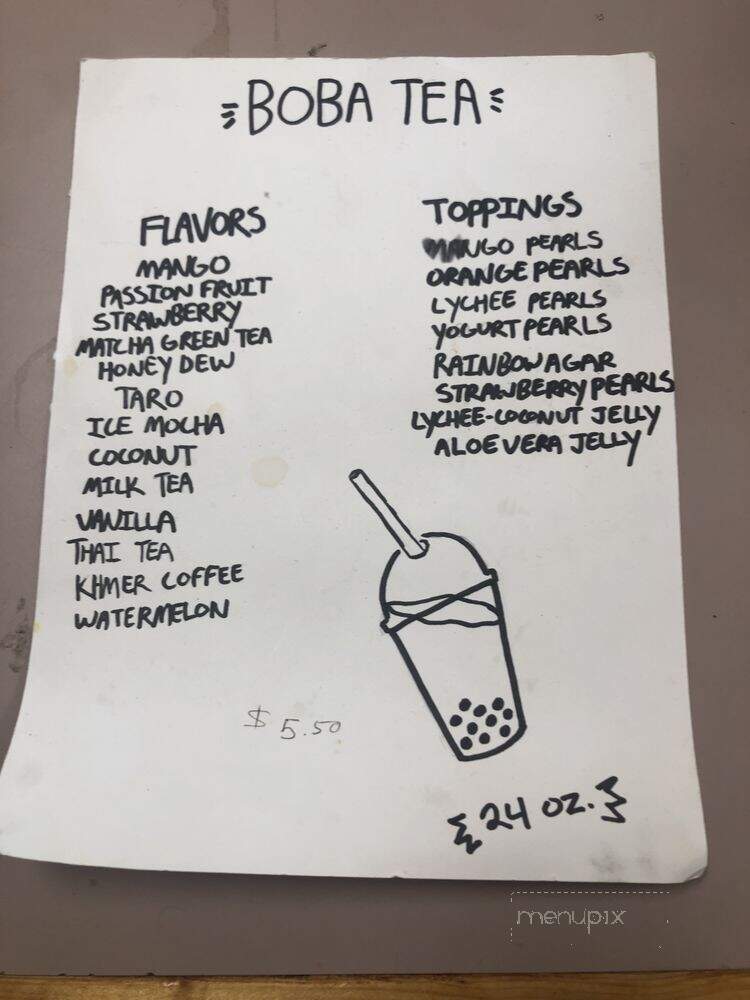 BOBA TEA
FLAVORS
MANGO
PASSION FRUIT
STRAWBERRY
MATCHA GREEN TEA
HONEY DEW
TARO
ICE MOCHA
COCONUT
MILK TEA
VANILLA
THAI TEA
KHMER COFFEE
WATERMELON
TOPPINGS
MANGO PEARLS
ORANGE PEARLS
LYCHEE PEARLS
YOGURT PEARLS
RAINBOW AGAR
STRAWBERRY PEARLS
LYCHEE-COCONUT JELLY
ALOE VERA JELLY
$ 5.50
{24 OZ.}
menupix